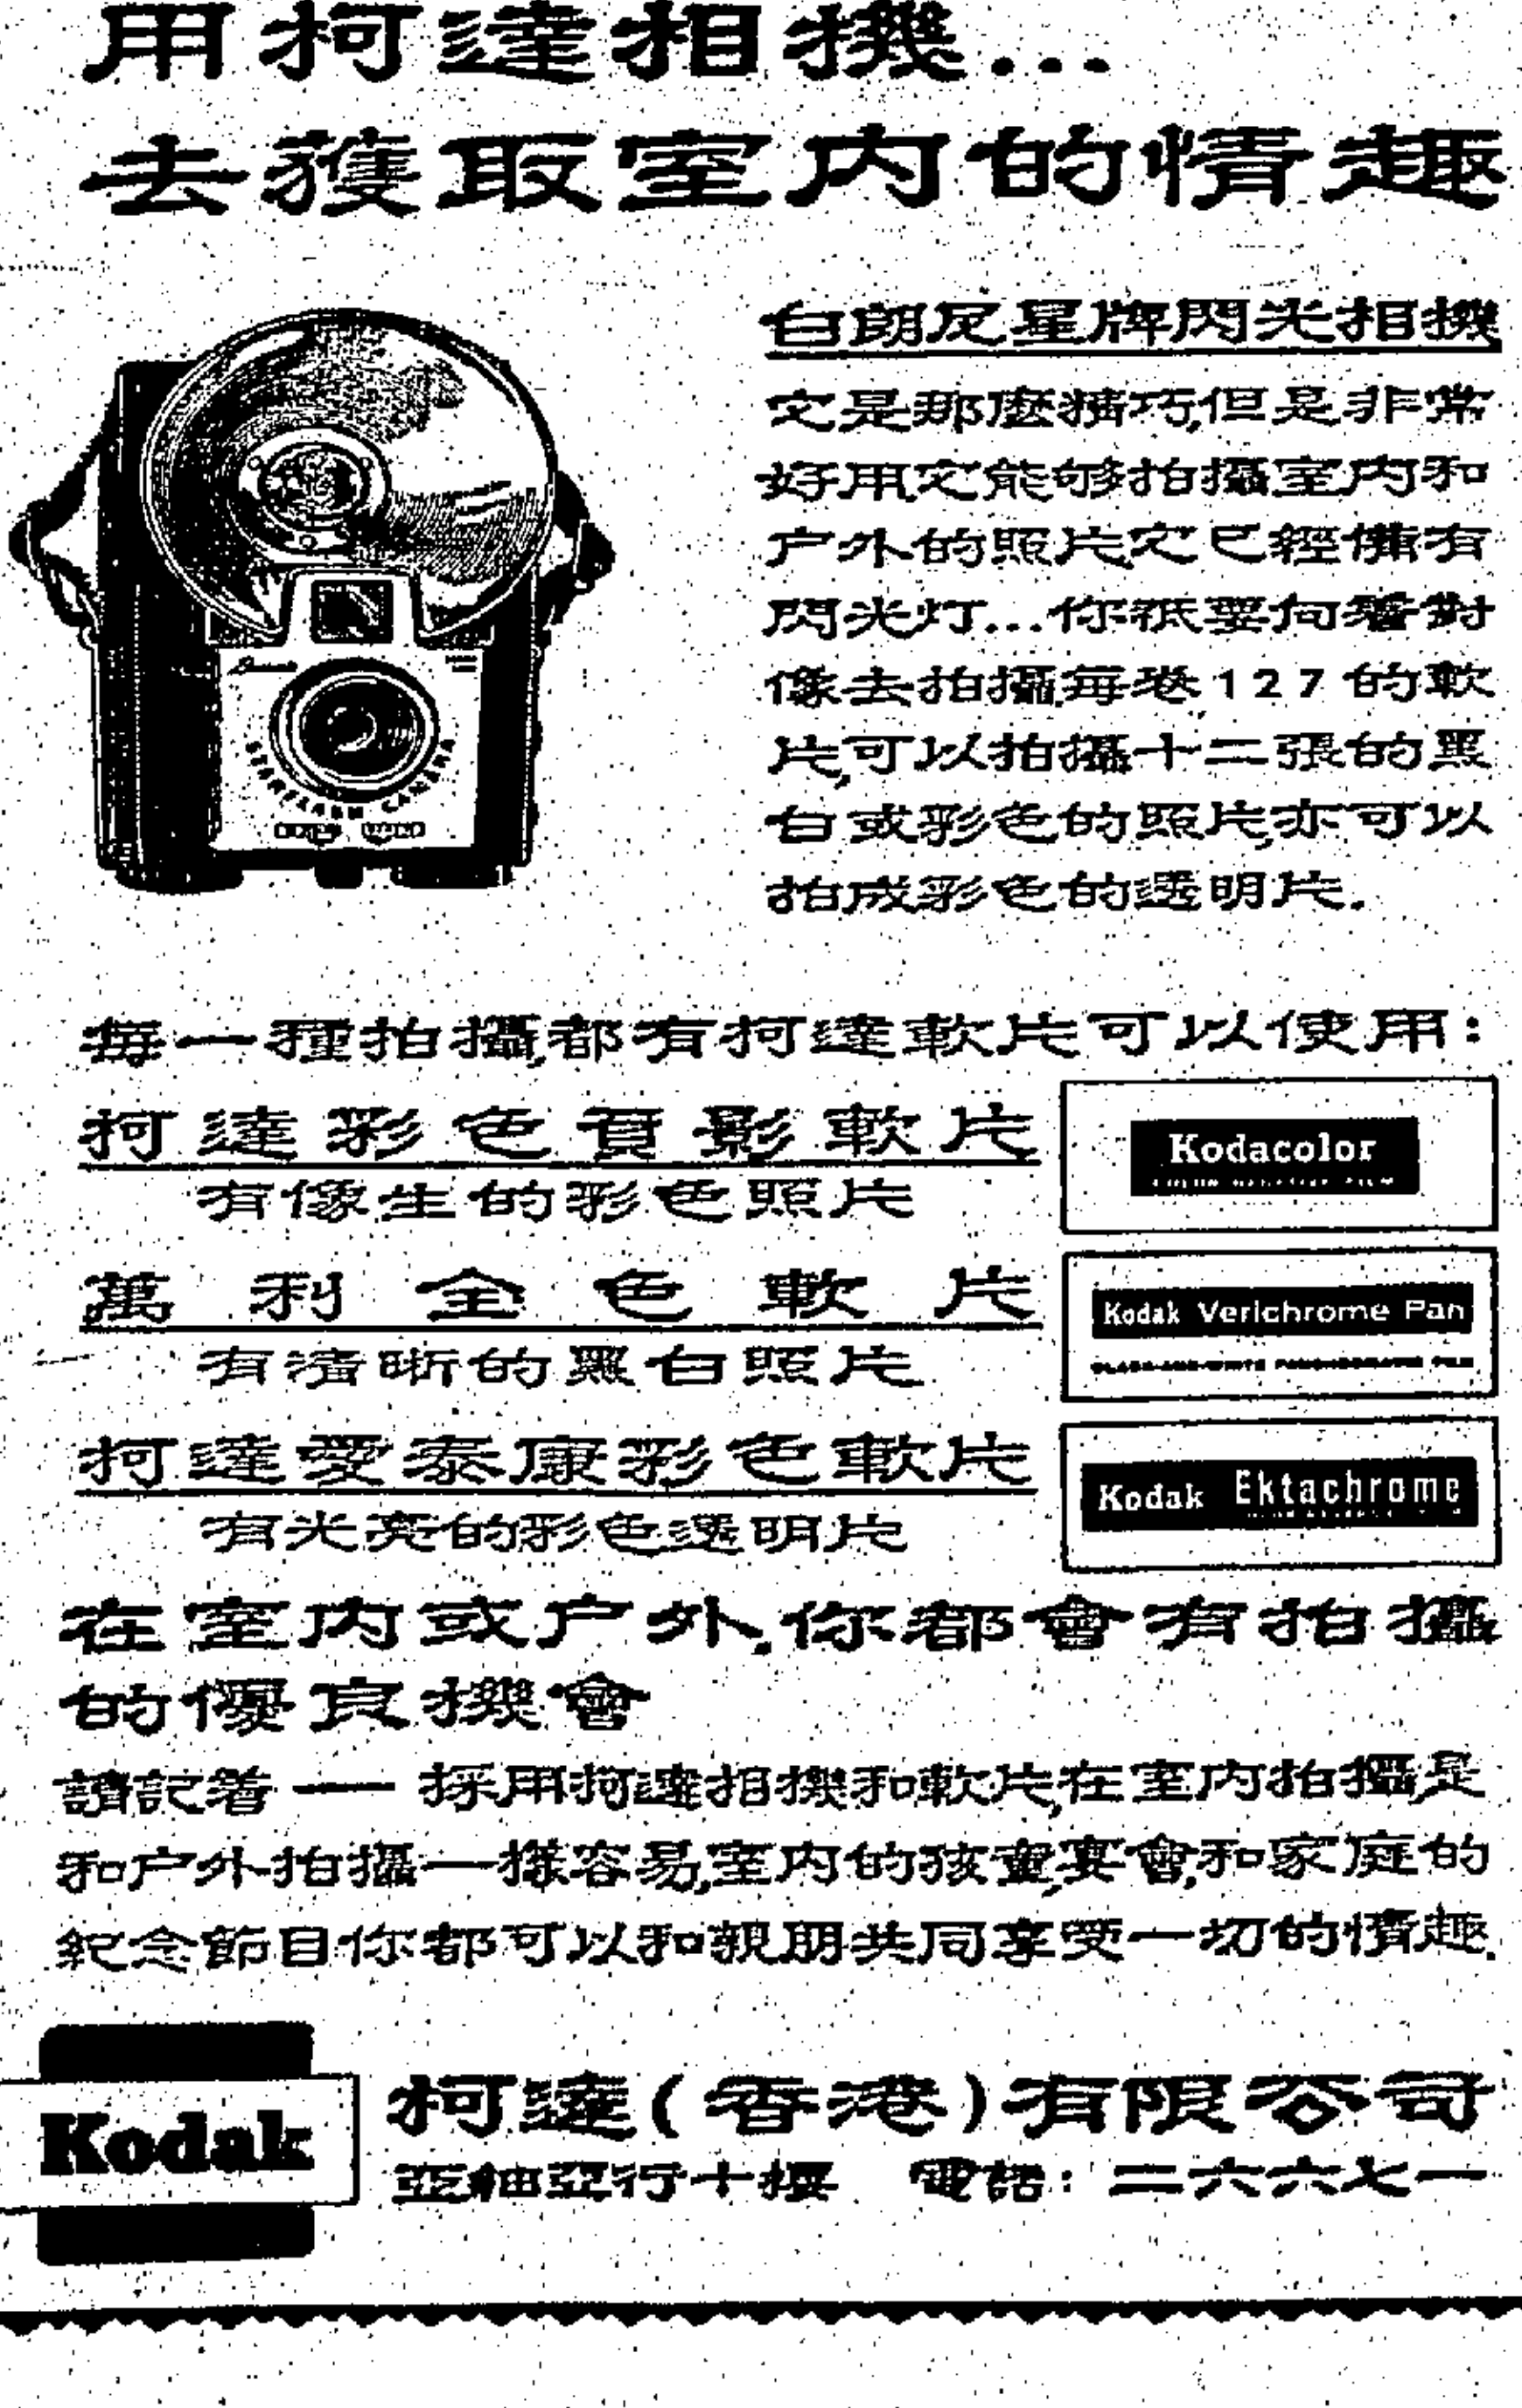 用柯達相機...
去獲取室内的情趣
白朗尼星牌閃光相機
它是那麽精巧,但是非常
好用,它能够拍攝室内和
户外的照片它已經備有
閃光灯...你祇要向着對
像去拍攝.每卷 127 的軟
片,可以拍攝十二張的黑
白或彩色的照片,亦可以
拍成彩色的透明片.
STARFLASH CAMERA
每一種拍攝,都有柯達軟片可以使用:
柯達彩色負影軟片
有像生的彩色照片
Kodacolor
萬利全色軟片
有清晰的黑白照片
Kodak Verichrome Pan
BLACK-AND-WHITE PANCHROMATIC FILM
柯達愛泰康彩色軟片
有光亮的彩色透明片
Kodak Ektachrome
在室内或户外,你都會有拍攝
的優良機會
請記着 — 採用柯達相機和軟片,在室内拍攝,是
和户外拍攝一様容易,室内的孩童,宴會,和家庭的
紀念節目你都可以和親朋共同享受一切的情趣.
Kodak
柯達(香港)有限公司
亞細亞行十樓 電話: 二六六七一